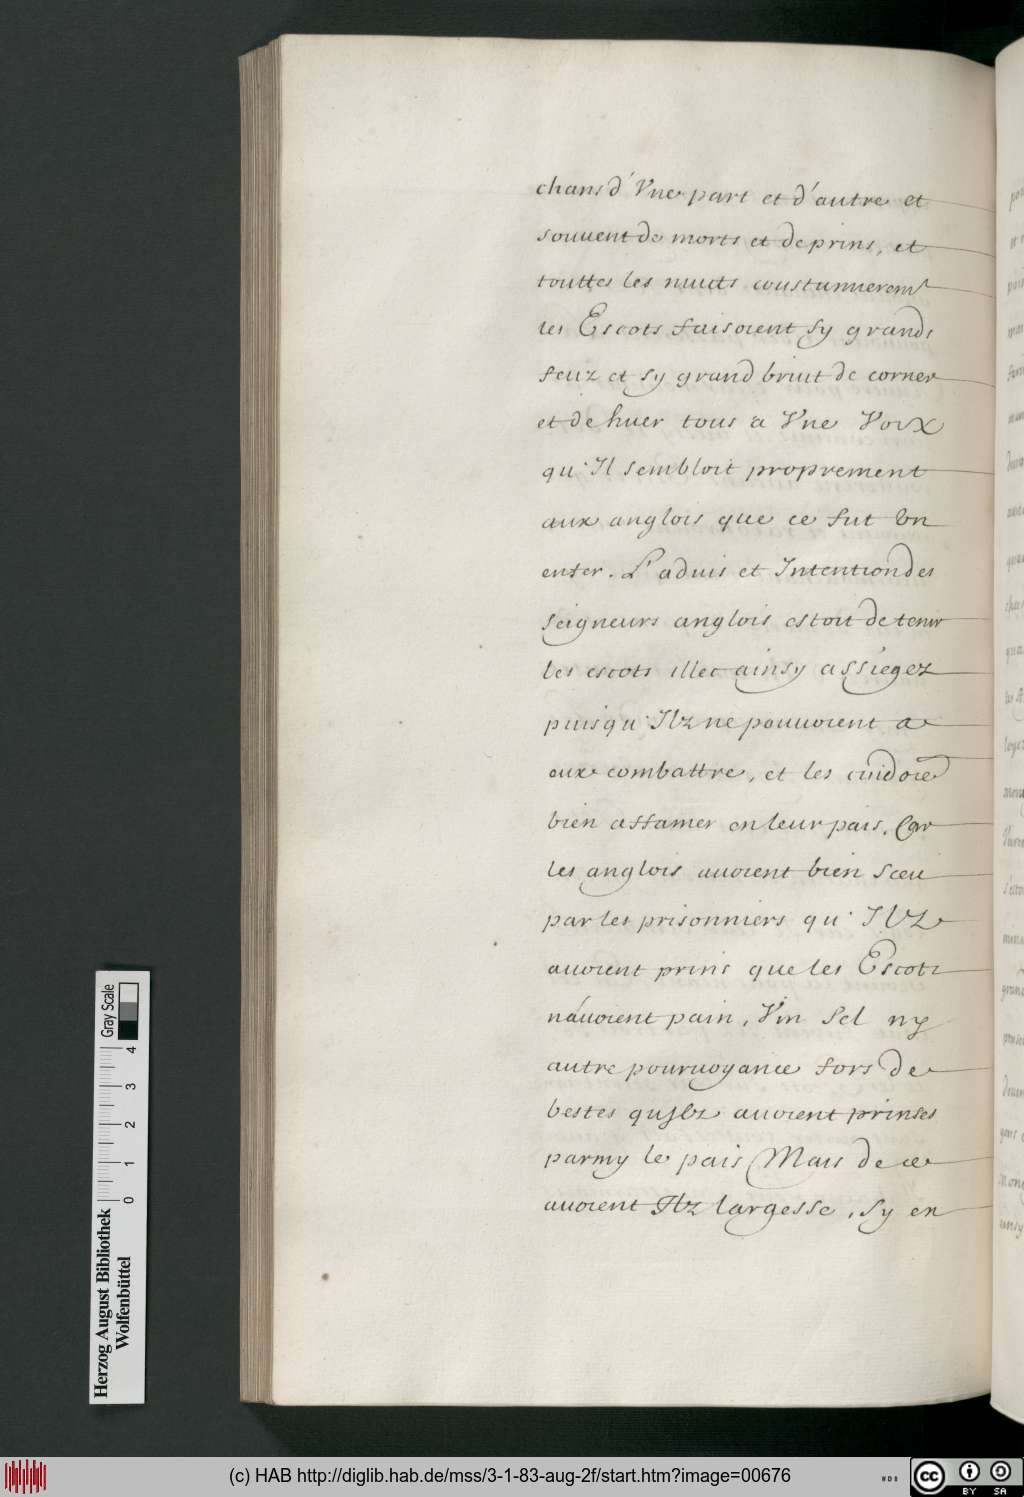 chans d'Vne part et d'autre et
souuent de morts et de prins, et
touttes les nuicts coustumierem.t
les Escots faisoient sy grands
feuz et sy grand bruit de corner
et de huer tous a Vne Voix
qu'Il sembloit proprement
aux anglois que ce fut Vn
enfer. L'aduis et Intention des
seigneurs anglois estoit de tenir
les escots illec ainsy assiegez
puisqu'Ilz ne pouuoient a
eux combattre, et les cuidoiẽ
bien affamer en leur pais, Car
les anglois auoient bien sceu
par les prisonniers qu'Ilz
auoient prins que les Escots
n'auoient pain, Vin Sel ny
autre pouruoyance fors de
bestes quJlz auoient prinses
parmy le pais Mais de ce
auoient Ilz largesse, sy en
Herzog August Bibliothek
Wolfenbüttel
0 1 2 3 4
Gray Scale
(c) HAB http://diglib.hab.de/mss/3-1-83-aug-2f/start.htm?image=00676
WDB
cc
BY SA